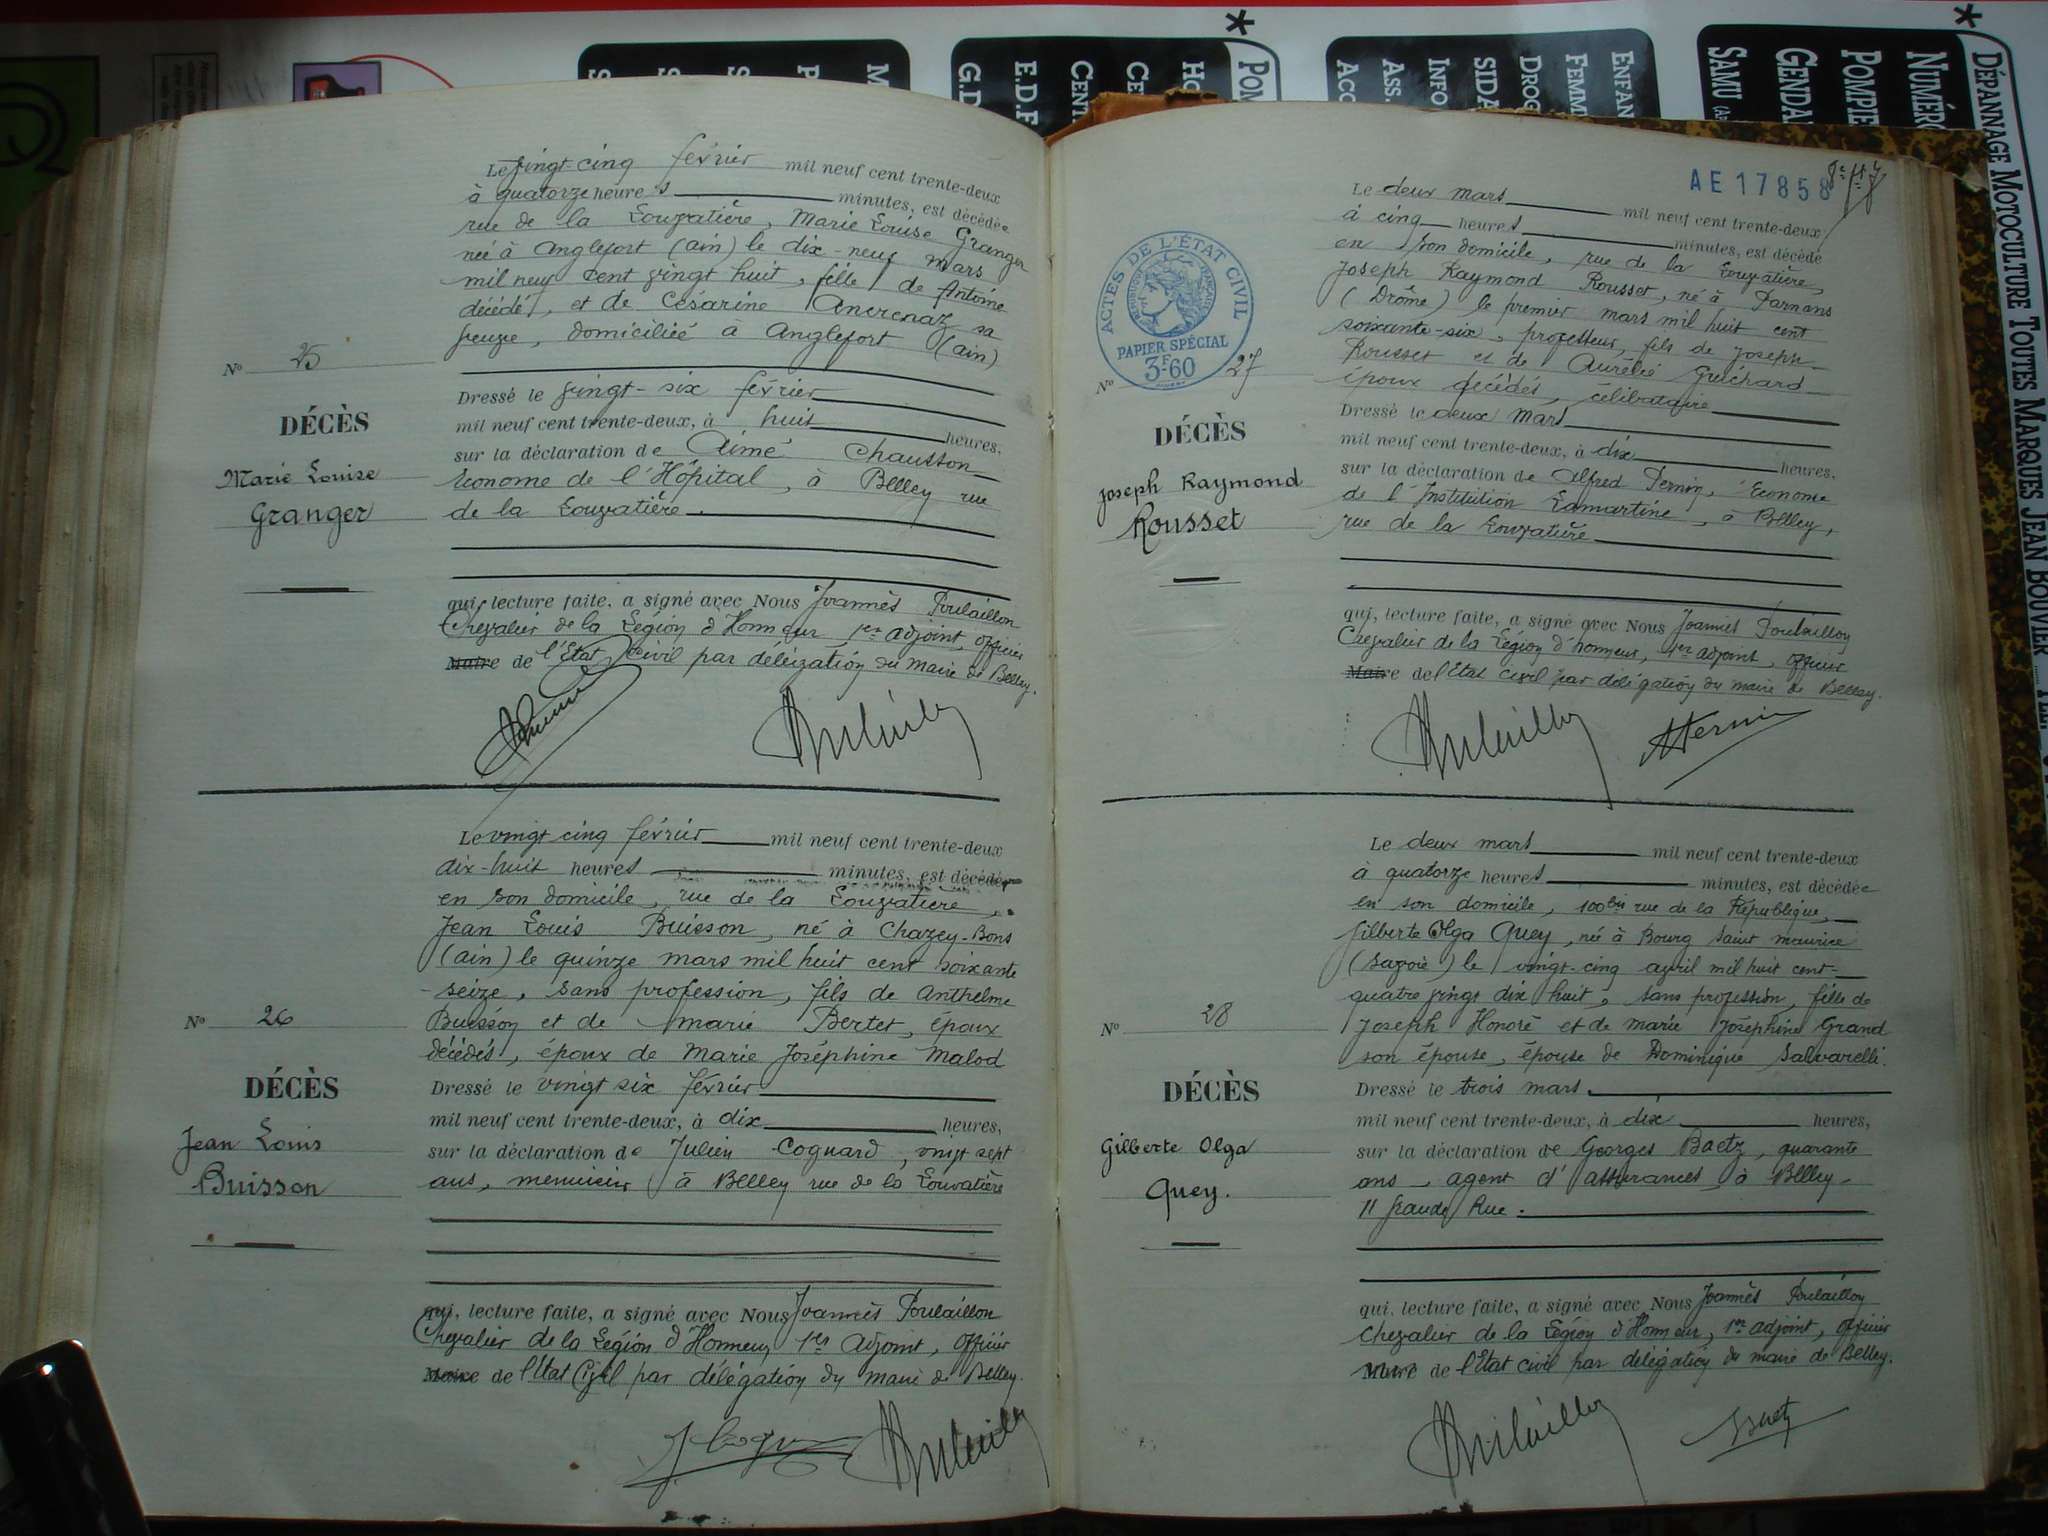 DÉPANNAGE MOTOCULTURE TOUTES MARQUES JEAN BOUVIER
NUMÉR
POMPIE
GENDA
SAMU
ENFAN
FEMM
DROG
SIDA
INFO
ASS.
ACC
POM
HO
CE
CENT
E.D.F
G.D.
M
P
S
S
S
Le vingt-cinq février mil neuf cent trente-deux
à quatorze heures minutes, est décédée
rue de la Louvatière, Marie Louise Granger
née à Anglefort (ain) le dix-neuf mars
mil neuf cent vingt huit, fille de Antoine
décédé, et de Césarine Ancrenaz sa
veuve, domiciliée à Anglefort (ain)
N° 25
DÉCÈS
Marie Louise
Granger
Dressé le vingt-six février
mil neuf cent trente-deux, à huit heures,
sur la déclaration de Aimé Chausson
Econome de l'Hôpital, à Belley rue
de la Louvatière.
qui, lecture faite, a signé avec Nous Joannès Poulaillon
Chevalier de la Légion d'Honneur, 1er adjoint, officier
Maire de l'Etat Civil par délégation du maire de Belley.
Le vingt cinq février mil neuf cent trente-deux
dix-huit heures minutes, est décédé
en son domicile, rue de la Louvatière,
Jean Louis Buisson, né à Chazey-Bons
(ain) le quinze mars mil huit cent soixante
-seize, sans profession, fils de Anthelme
Buisson et de Marie Bertet, époux
décédés, époux de Marie Joséphine Malod
N° 26
DÉCÈS
Jean Louis
Buisson
Dressé le vingt six février
mil neuf cent trente-deux, à dix heures,
sur la déclaration de Julien Cognard, vingt sept
ans, menuisier à Belley rue de la Louvatière
qui, lecture faite, a signé avec Nous Joannès Poulaillon
Chevalier de la Légion d'Honneur, 1er Adjoint, officier
Maire de l'Etat Civil par délégation du maire de Belley.
AE17858
ACTES DE L'ÉTAT CIVIL
RÉPUBLIQUE FRANÇAISE
PAPIER SPÉCIAL
3F60
Le deux mars mil neuf cent trente-deux
à cinq heures minutes, est décédé
en son domicile, rue de la Louvatière,
Joseph Raymond Rousset, né à Parnans
(Drôme) le premier mars mil huit cent
soixante-six, professeur, fils de Joseph
Rousset et de Aurélie Guichard
époux décédés, célibataire
N° 27
DÉCÈS
Joseph Raymond
Rousset
Dressé le deux mars
mil neuf cent trente-deux, à dix heures,
sur la déclaration de Alfred Pernin, Econome
de l'Institution Lamartine, à Belley,
rue de la Louvatière
qui, lecture faite, a signé avec Nous Joannès Poulaillon
Chevalier de la Légion d'honneur, 1er adjoint, officier
Maire de l'Etat civil par délégation du maire de Belley.
Le deux mars mil neuf cent trente-deux
à quatorze heures minutes, est décédée
en son domicile, 100bis rue de la République,
Gilberte Olga Quey, née à Bourg Saint Maurice
(Savoie) le vingt-cinq avril mil huit cent-
quatre vingt dix huit, sans profession, fille de
Joseph Honoré et de Marie Joséphine Grand
son épouse, épouse de Dominique Salvarelli.
N° 28
DÉCÈS
Gilberte Olga
Quey.
Dressé le trois mars
mil neuf cent trente-deux, à dix heures,
sur la déclaration de Georges Baetz, quarante
ans, agent d'assurances, à Belley-
11 Grande Rue.
qui, lecture faite, a signé avec Nous Joannès Poulaillon
Chevalier de la Légion d'Honneur, 1er adjoint, officier
Maire de l'Etat civil par délégation du maire de Belley.